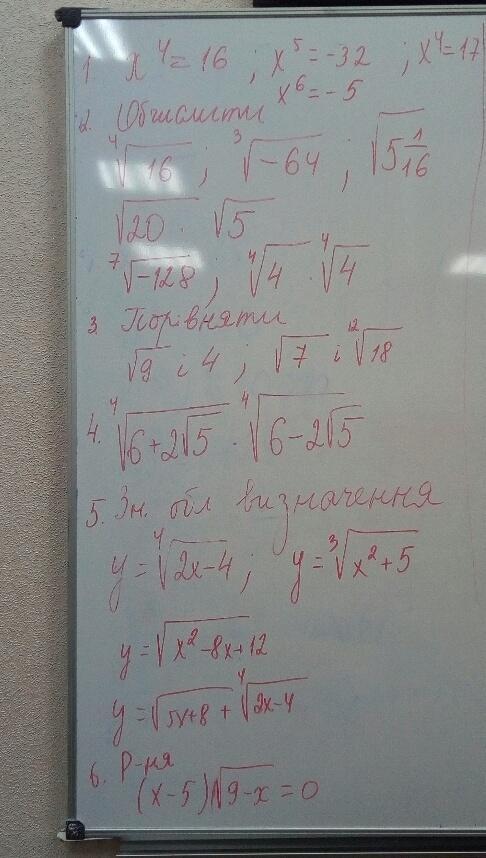 1 x⁴ = 16 ; x⁵ = -32 ; x⁴ = 17
x⁶ = -5
2. Обчислити
⁴√16 ; ³√-64 ; √5 1/16
√20 · √5
⁷√-128 ; ⁴√4 · ⁴√4
3 Порівняти
√9 і 4 ; √7 і ¹²√18
4. ⁴√(6+2√5) · ⁴√(6-2√5)
5. Зн. обл визначення
y = ⁴√(2x-4) ; y = ³√(x²+5)
y = √(x²-8x+12)
y = √(5x+8) + ⁴√(2x-4)
6. Р-ня
(x-5)√(9-x) = 0